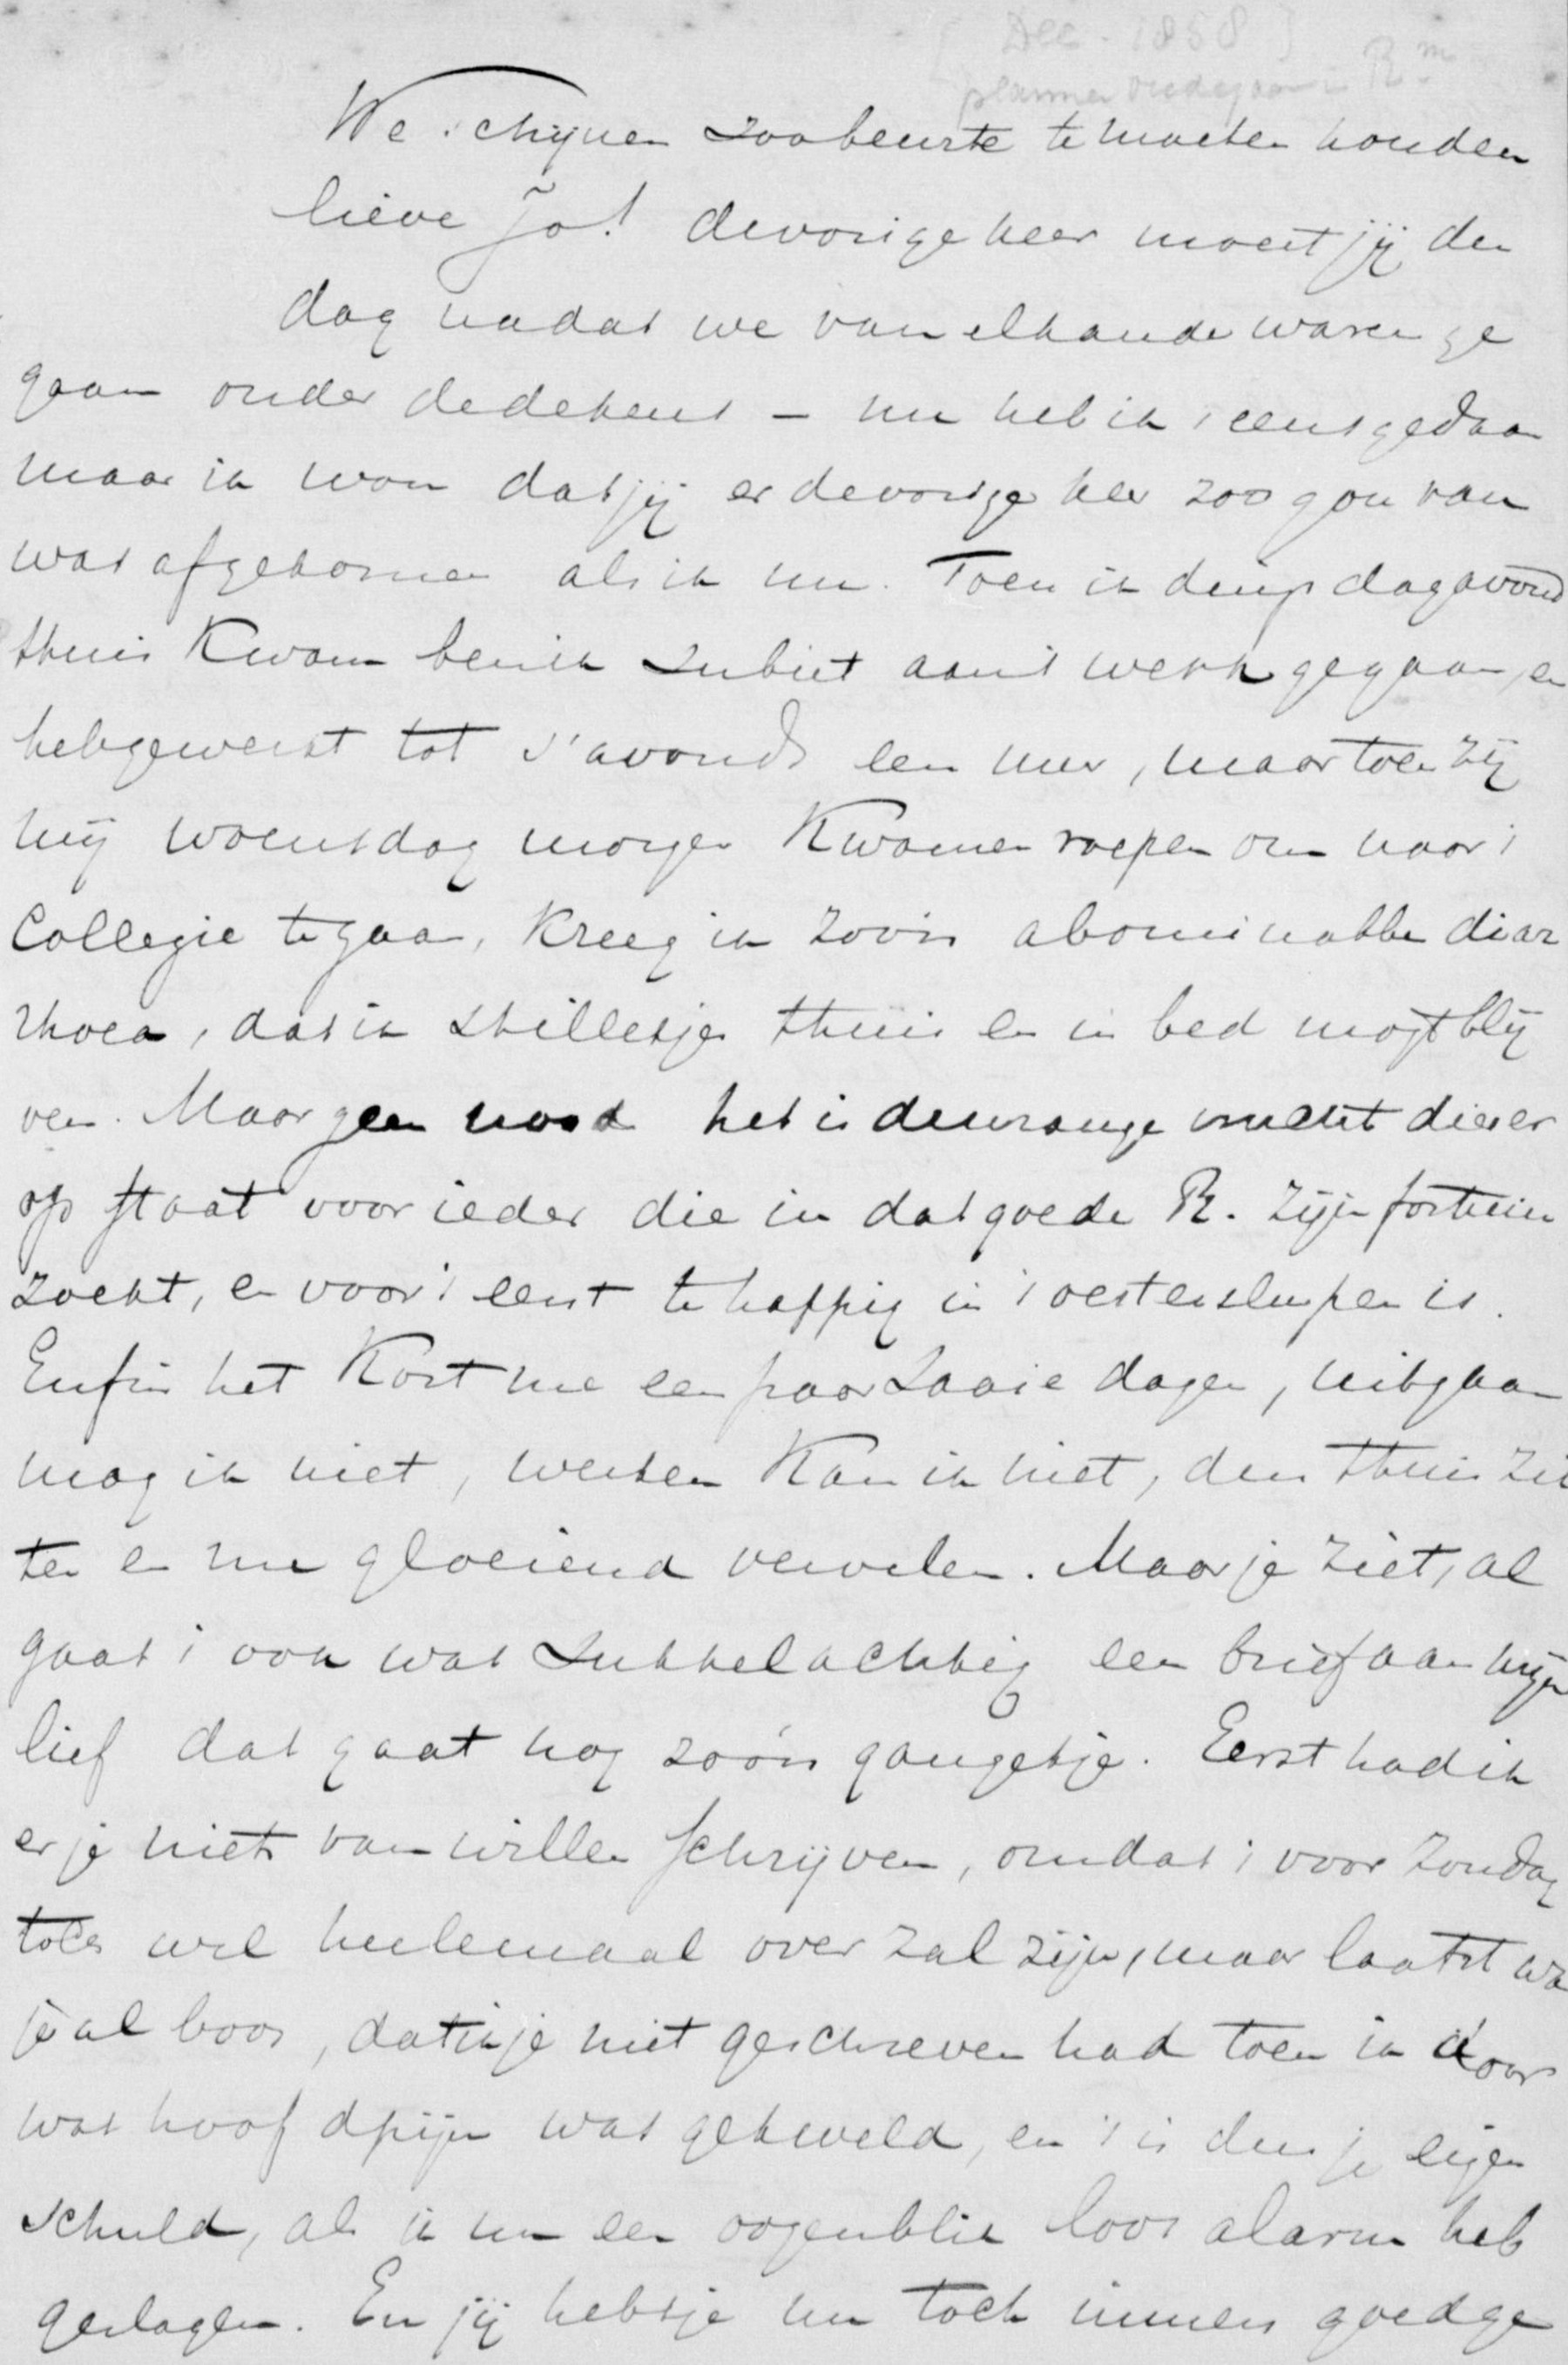 [Dec. 1858]
We schijnen zoo beurte te moeten houden
lieve Jo! de vorige keer moest jij den
dag nadat we van elkander waren ge
gaan onder de dekens – nu heb ik 't eens gedaan
maar ik wou dat jij er de vorige keer zoo gou van
was afgekomen als ik nu. Toen ik dingsdagavond
thuis kwam ben ik subiet aan 't werk gegaan, en
heb gewerkt tot s'avonds een uur, maar toen zij
mij woensdag morgen kwamen roepen om naar 't
Collegie te gaan, kreeg ik zoo'n abominabele diar
rhoea, dat ik stilletjes thuis en in bed mogt blij
ven. Maar geen nood het is de wrange vrucht die er
op staat voor ieder die in dat goede R. zijn fortuin
zoekt, en voor 't eerst te happig in 't oesterslurpen is.
Enfin het kost me een paar saaie dagen, uitgaan
mag ik niet, werken kan ik niet, dus thuis zit
ten en me gloeiend vervelen. Maar je ziet, al
gaat 't ook wat sukkelachtig een brief aan mijn
lief dat gaat nog zoo'n gangetje. Eerst had ik
er je niets van willen schrijven, omdat 't voor Zondag
toch wel heelemaal over zal zijn, maar laatst wa
je al boos, dat ik je niet geschreven had toen ik door
wat hoofdpijn was gekweld, en 't is dus je eigen
schuld, als ik nu een oogenblik loos alarm heb
geslagen. En jij hebt je nu toch immers goed ge